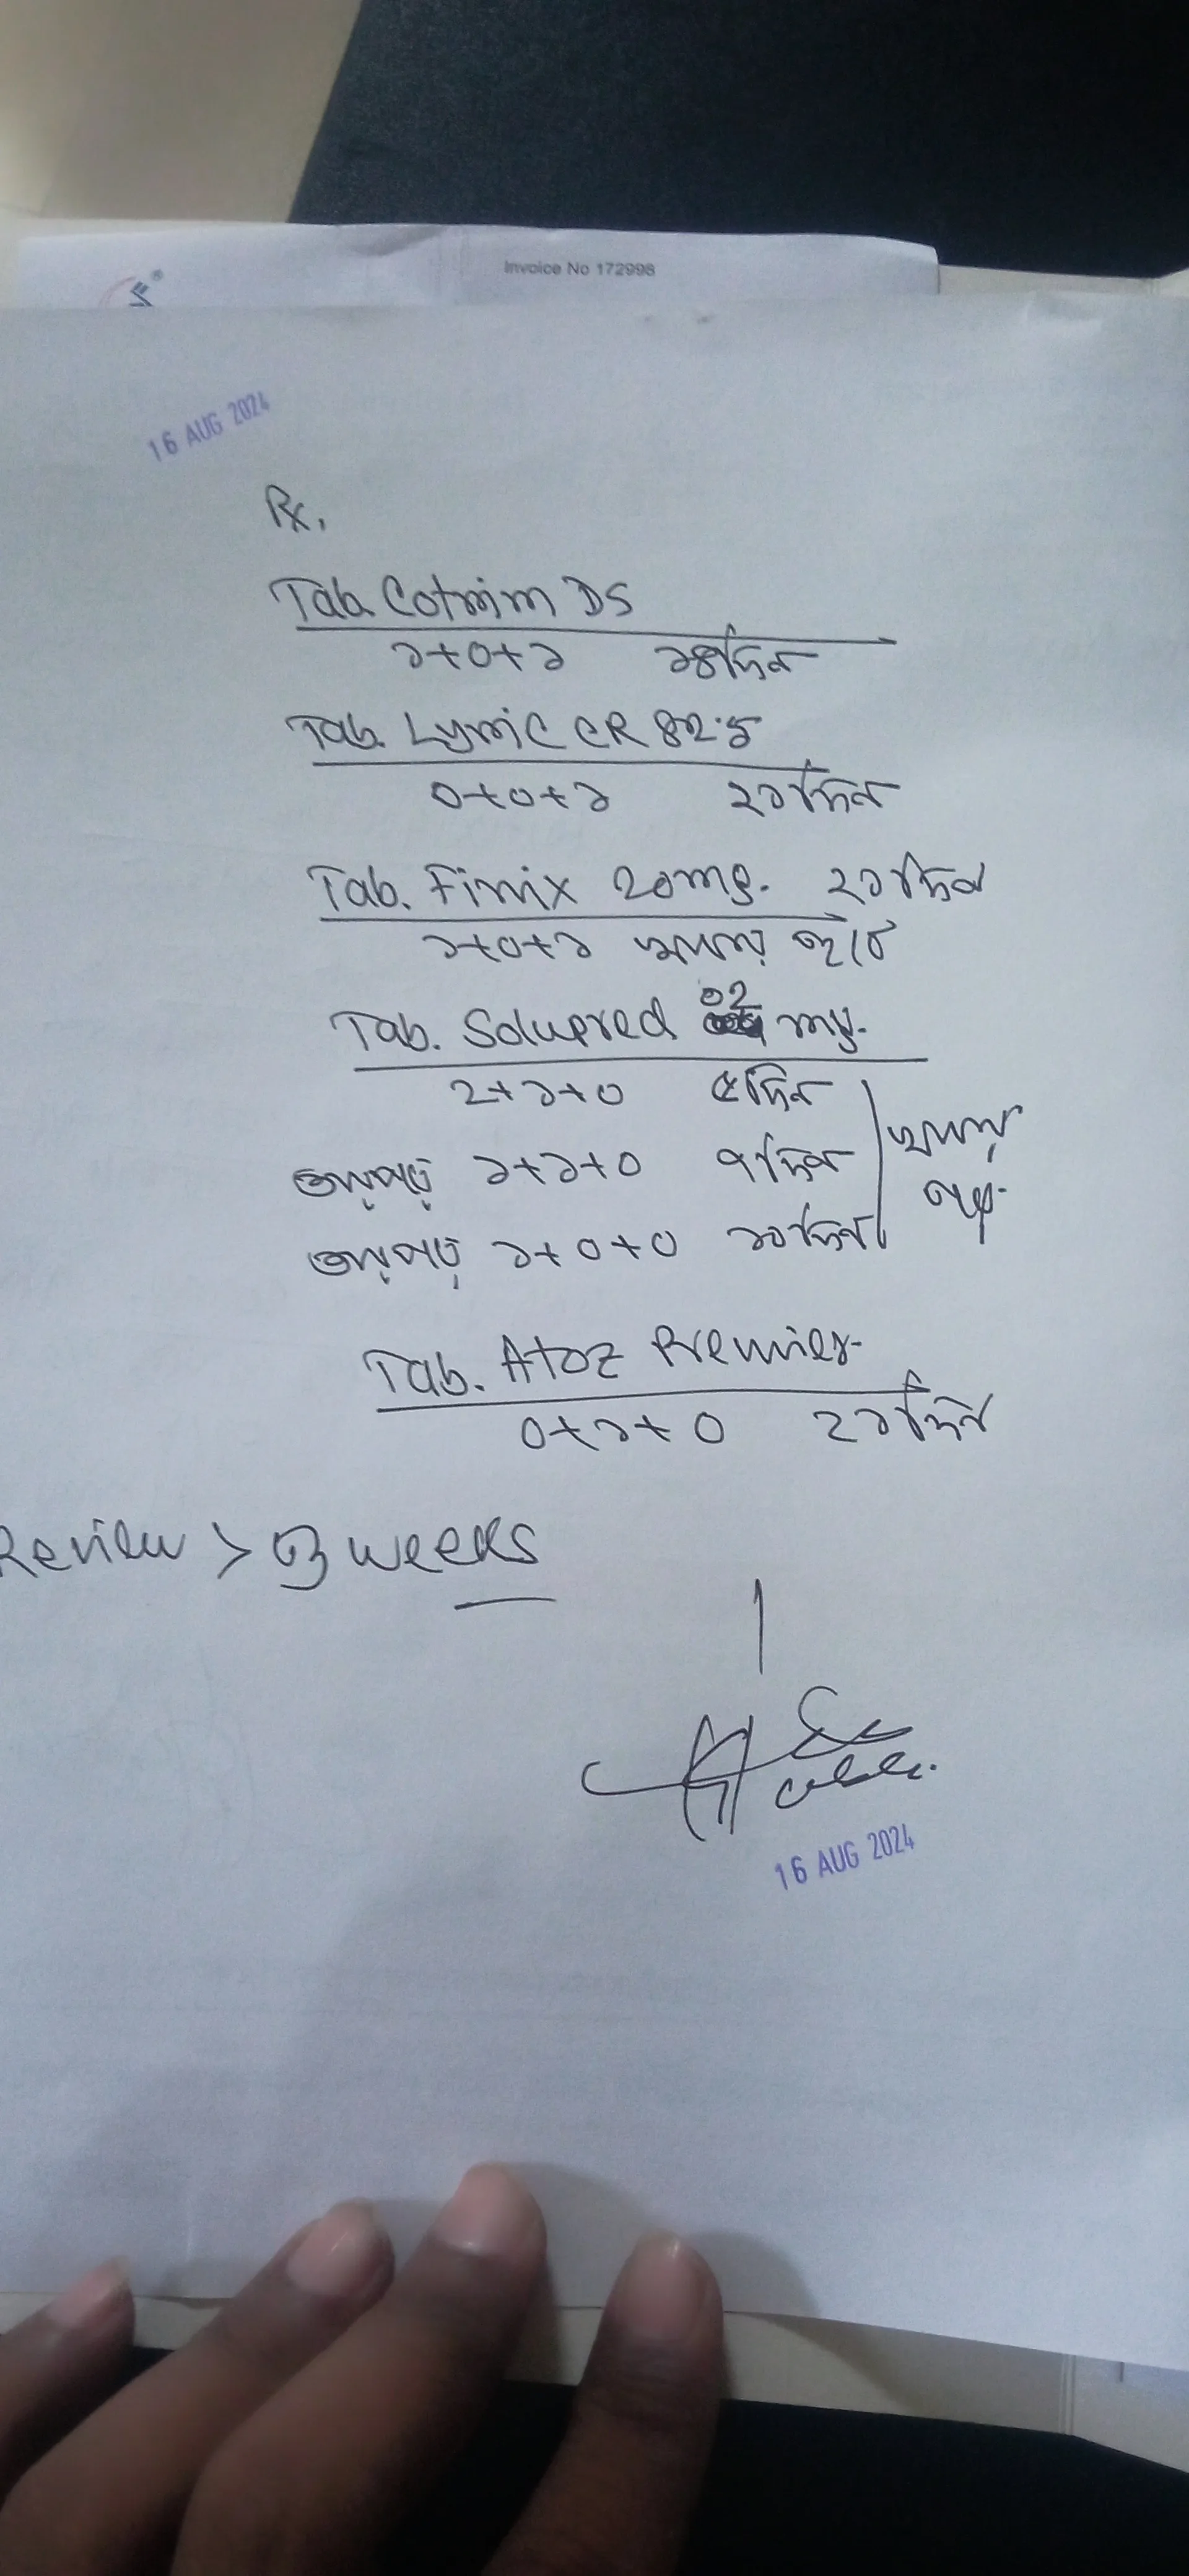 Invoice No 172998
16 AUG 2024
Rx.
Tab. Cotrim DS
১+০+১ ১৪দিন
Tab. Lyric CR 82.5
০+০+১ ২১দিন
Tab. Finix 20mg. ২১দিন
১+০+১ খাবার আগে
Tab. Solupred 02 mg.
2+১+০ ৫দিন
তারপর ১+১+০ ৭দিন
খাবার পর
তারপর ১+০+০ ১০দিন
Tab. Atoz Premier
০+১+০ 2১দিন
Review > 3 weeks
16 AUG 2024